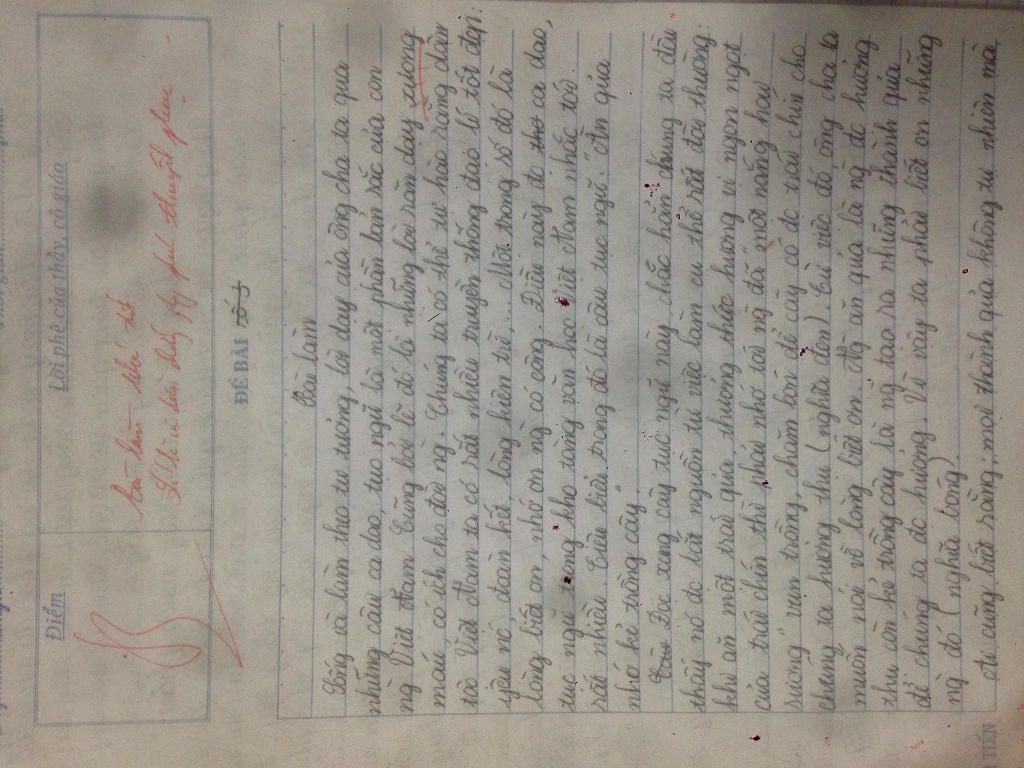 Điểm
Lời phê của thầy, cô giáo
Bài làm khá tốt
ĐỀ BÀI
Bài làm
Sống và làm theo tư tưởng, lời dạy của ông cha ta qua
những câu ca dao, tục ngữ là nét phần bản sắc của con
ng Việt Nam. Cũng bởi lẽ đó là những lời răn dạy
máu có ích cho đời ng. Chúng ta có thể tự hào rằng dân
tộc Việt Nam ta có rất nhiều truyền thống đạo lí tốt đẹp:
yêu nc, đoàn kết, lòng hiền từ,... Một trong số đó là
lòng biết ơn, nhớ ơn ng có công. Điều này đc ca dao,
tục ngữ trong kho tàng văn học Việt Nam nhắc tới
rất nhiều. Tiêu biểu trong đó là câu tục ngữ: "Ăn quả
nhớ kẻ trồng cây".
Đọc xong câu tục ngữ này, chắc hẳn chúng ta đều
thấy nó đc bắt nguồn từ việc làm cụ thể rất đời thường:
khi ăn một trái quả, thưởng thức hương vị ngon ngọt
của trái chín thì phải nhớ tới ng đã "một nắng hai
sương" vun trồng, chăm bón để cây có đc trái chín cho
chúng ta hưởng thụ (nghĩa đen). Từ việc đó ông cha ta
muốn nói về lòng biết ơn. Ng ăn quả là ng đc hưởng
thụ còn kẻ trồng cây là ng tạo ra những thành quả
để chúng ta đc hưởng. Vì vậy ta phải biết ơn những
ng đó (nghĩa bóng)
Ai cũng biết rằng, mọi thành quả không tự nhiên mà
TIẾN